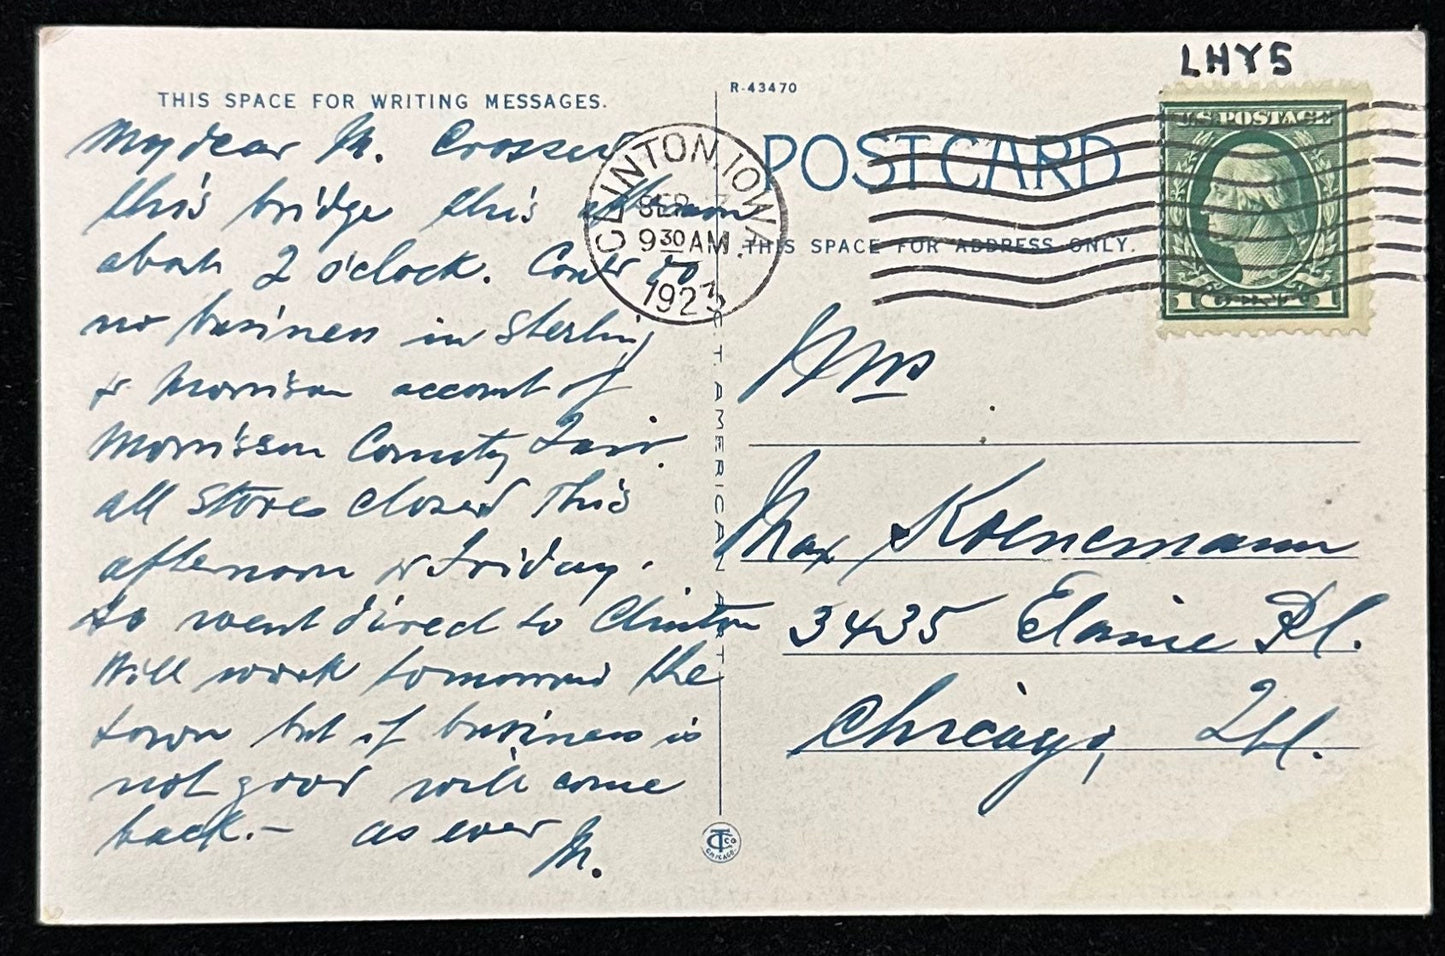 LHY5
THIS SPACE FOR WRITING MESSAGES.
R-43470
POST CARD
THIS SPACE FOR ADDRESS ONLY.
U.S. POSTAGE
1 CENT 1
CLINTON, IOWA.
SEP
9 30 AM
1923
My dear M. Crossed
this bridge this afternoon
about 2 o'clock. Could do
no business in Sterling
& Morrison account of
Morrison County Fair.
all stores closed this
afternoon & Friday.
So went direct to Clinton
Will work tomorrow the
town but if business is
not good will come
back.- as ever
M.
C. T. AMERICAN ART
CT CO
CHICAGO
Mrs
Max Koenemann
3435 Elaine Pl.
Chicago, Ill.